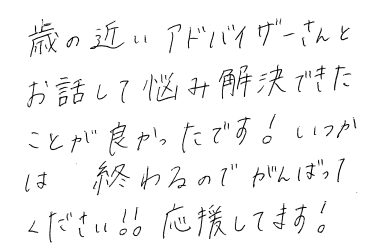 歳の近いアドバイザーさんと
お話して悩み解決できた
ことが良かったです!いつか
は 終わるのでがんばって
ください!!応援してます!